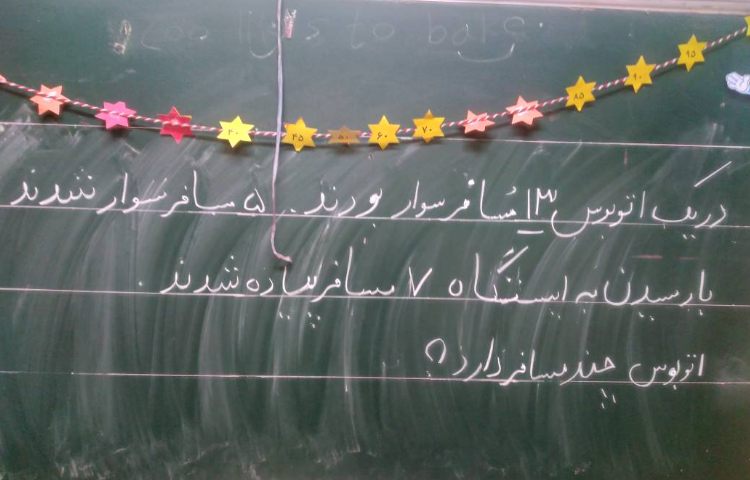 to
۴۰ ۴۵ ۵۰ ۶۰ ۷۰ ۸۵ ۹۰ ۹۵
در یک اتوبوس ۱۳ مسافر سوار بودند. ۵ مسافر سوار شدند
با رسیدن به ایستگاه ۷ مسافر پیاده شدند.
اتوبوس چند مسافر دارد؟